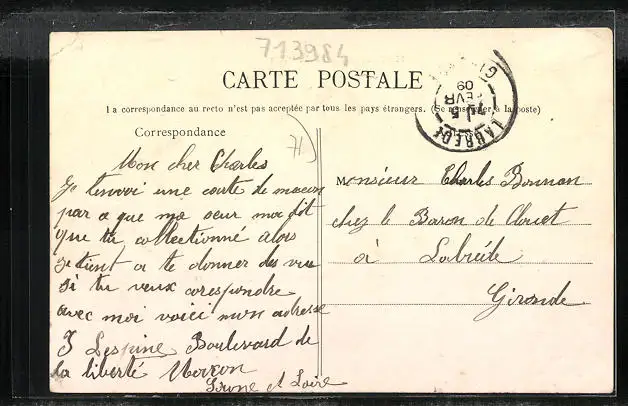 713984
CARTE POSTALE
La correspondance au recto n'est pas acceptée par tous les pays étrangers. (Se renseigner à la poste)
Correspondance
71
Mon cher Charles
Je t'envoi une carte de macon
par ce que ma seur ma dit
que tu collectionné alors
je tient a te donner des vue
si tu veux corespondre
avec moi voici mon adresse
J Lespine Boulevard de
la liberté Macon
Saone et Loire
Monsieur Charles Bonnan
chez le Baron de Clouet
à Labrède
Gironde
LABREDE
5
FEVR
09